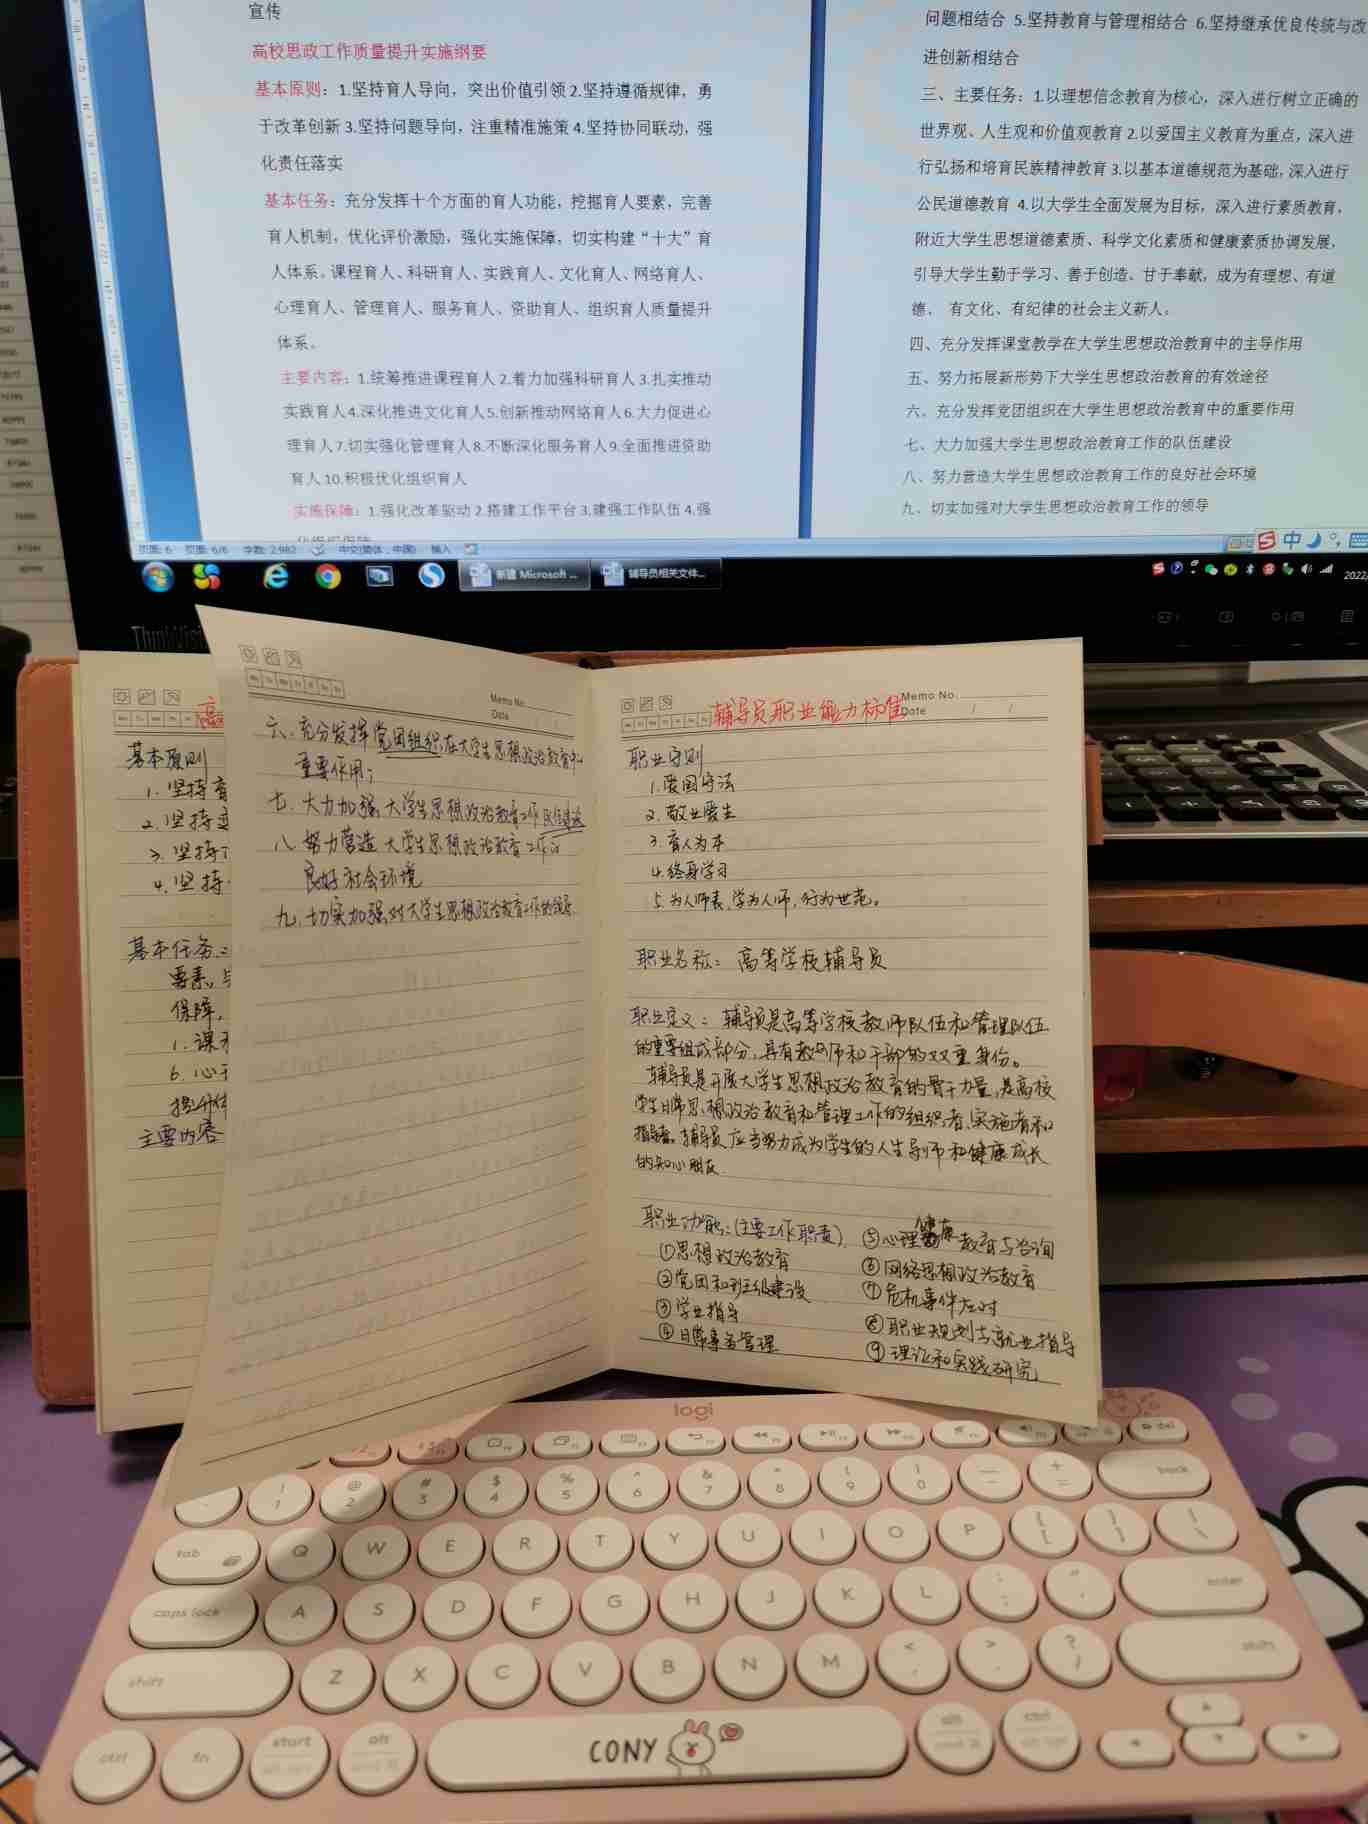 宣传
高校思政工作质量提升实施纲要
基本原则：1.坚持育人导向，突出价值引领 2.坚持遵循规律，勇
于改革创新 3.坚持问题导向，注重精准施策 4.坚持协同联动，强
化责任落实
基本任务：充分发挥十个方面的育人功能，挖掘育人要素，完善
育人机制，优化评价激励，强化实施保障，切实构建“十大”育
人体系。课程育人、科研育人、实践育人、文化育人、网络育人、
心理育人、管理育人、服务育人、资助育人、组织育人质量提升
体系。
主要内容：1.统筹推进课程育人 2.着力加强科研育人 3.扎实推动
实践育人4.深化推进文化育人5.创新推动网络育人6.大力促进心
理育人7.切实强化管理育人8.不断深化服务育人9.全面推进资助
育人10.积极优化组织育人
实施保障：1.强化改革驱动 2.搭建工作平台 3.建强工作队伍 4.强
问题相结合 5.坚持教育与管理相结合 6.坚持继承优良传统与改
进创新相结合
三、主要任务：1.以理想信念教育为核心，深入进行树立正确的
世界观、人生观和价值观教育 2.以爱国主义教育为重点，深入进
行弘扬和培育民族精神教育 3.以基本道德规范为基础，深入进行
公民道德教育 4.以大学生全面发展为目标，深入进行素质教育，
附近大学生思想道德素质、科学文化素质和健康素质协调发展，
引导大学生勤于学习、善于创造、甘于奉献，成为有理想、有道
德、 有文化、有纪律的社会主义新人。
四、充分发挥课堂教学在大学生思想政治教育中的主导作用
五、努力拓展新形势下大学生思想政治教育的有效途径
六、充分发挥党团组织在大学生思想政治教育中的重要作用
七、大力加强大学生思想政治教育工作的队伍建设
八、努力营造大学生思想政治教育工作的良好社会环境
九、切实加强对大学生思想政治教育工作的领导
页面: 6 页面: 6/6 字数: 2,982 中文(简体，中国) 插入
中
新建 Microsoft ...
辅导员相关文件...
2022/
ThinkVisi
高
基本原则
1. 坚持育
2. 坚持
3. 坚持
4. 坚持
基本任务
要素,
保障,
1. 课
6. 心
提升体
主要内容
Memo No.
Date
六. 充分发挥党团组织在大学生思想政治教育中
重要作用;
七. 大力加强大学生思想政治教育工作队伍建设
八 努力营造大学生思想政治教育工作的
良好社会环境
九. 切实加强对大学生思想政治教育工作的领导.
辅导员职业能力标准
Memo No.
Date / /
职业守则
1. 爱国守法
2. 敬业爱生
3. 育人为本
4. 终身学习
5. 为人师表, 学为人师, 行为世范。
职业名称: 高等学校辅导员
职业定义: 辅导员是高等学校教师队伍和管理队伍
的重要组成部分, 具有教师和干部的双重身份。
辅导员是开展大学生思想政治教育的骨干力量, 是高校
学生日常思想政治教育和管理工作的组织者、实施者和
指导者。辅导员应当努力成为学生的人生导师和健康成长
的知心朋友
职业功能: (主要工作职责)
①思想政治教育
②党团和班级建设
③学业指导
④日常事务管理
⑤心理健康教育与咨询
⑥网络思想政治教育
⑦危机事件应对
⑧职业规划与就业指导
⑨理论和实践研究
logi
! 1 @ 2 # 3 $ 4 % 5 ^ 6 & 7 * 8 ( 9 ) 0 — + = back
tab Q W E R T Y U I O P { [ } ] | \
caps lock A S D F G H J K L : ; " ' enter
shift Z X C V B N M < , > . ? / shift
ctrl fn start alt CONY alt ctrl